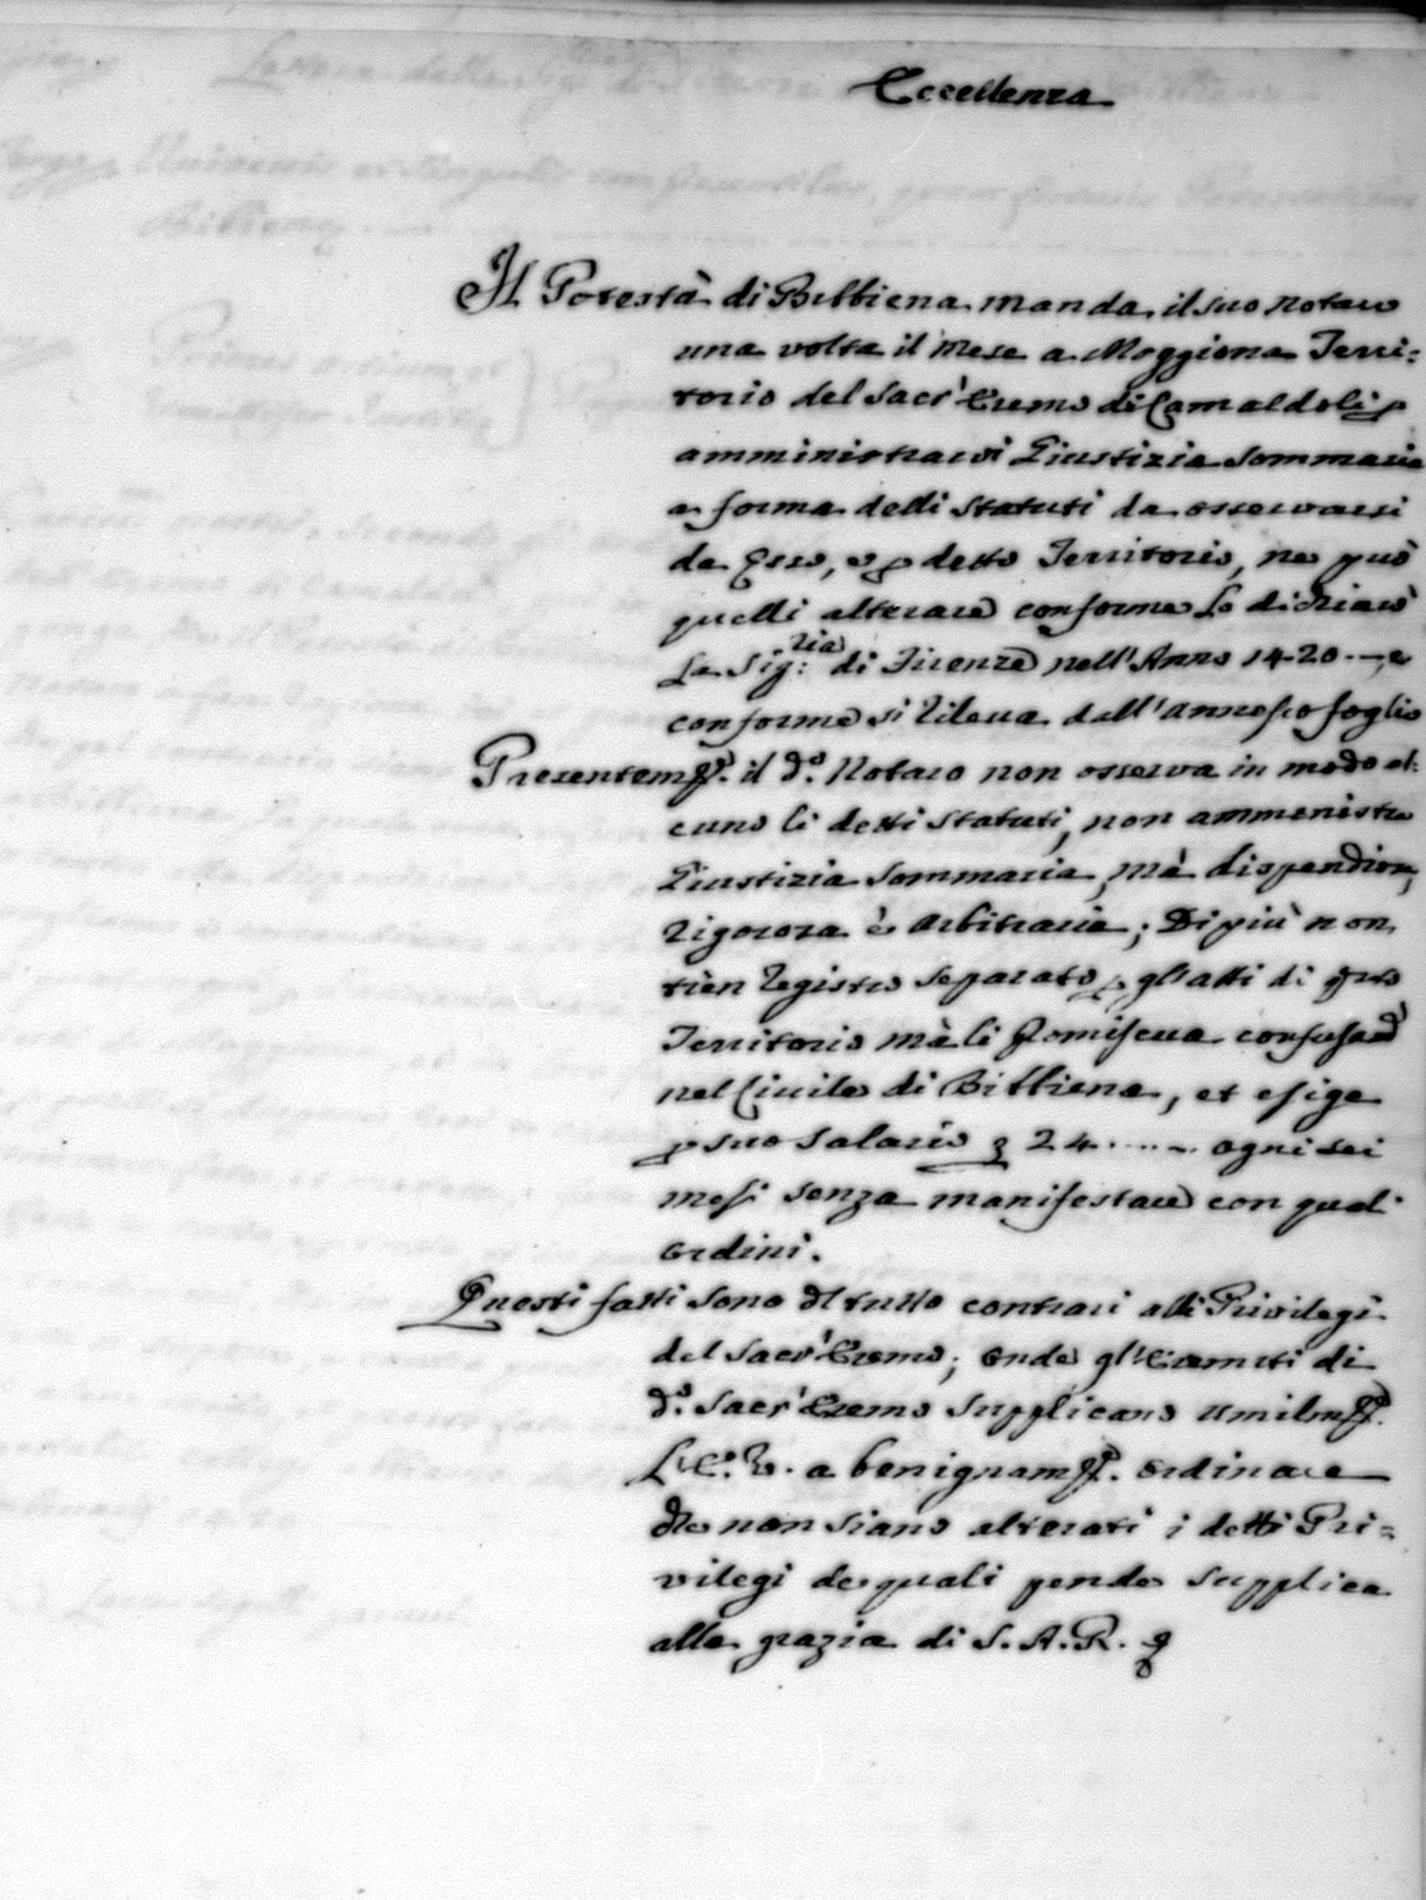 Eccellenza
Il Potestà di Bibbiena manda il suo Notaro
una volta il Mese a Moggiona Terri=
torio del Sacr'Eremo di Camaldoli p
amministrarvi Giustizia Sommaria
a forma delli Statuti da osservarsi
da Esso, e p detto Territorio, ne può
quelli alterare conforme lo dichiarò
La Sig:ria di Firenze nell'Anno 1420 -, e
conforme si rileva dall'annesso foglio
Presentemte. il do. Notaro non osserva in modo al=
cuno li detti Statuti, non amministra
Giustizia Sommaria, mà
rigorosa è Arbitraria; Di più non
tien registro separato p gl'atti di qsto
Territorio mà li Promiscua
nel Civile di Bibbiena, et esige
p suo Salario 24 ..... ogni sei
mesi senza manifestare con quali
ordini.
Questi fatti sono del tutto contrari alli Privilegi
del Sacr'Eremo; onde gl'Eremiti di
do. Sacr'Eremo Supplicano umilmte.
L'E. V. a benignamte. ordinare
che non siano alterati i detti Pri=
vilegi de quali pende Supplica
alla grazia di S. A. R.